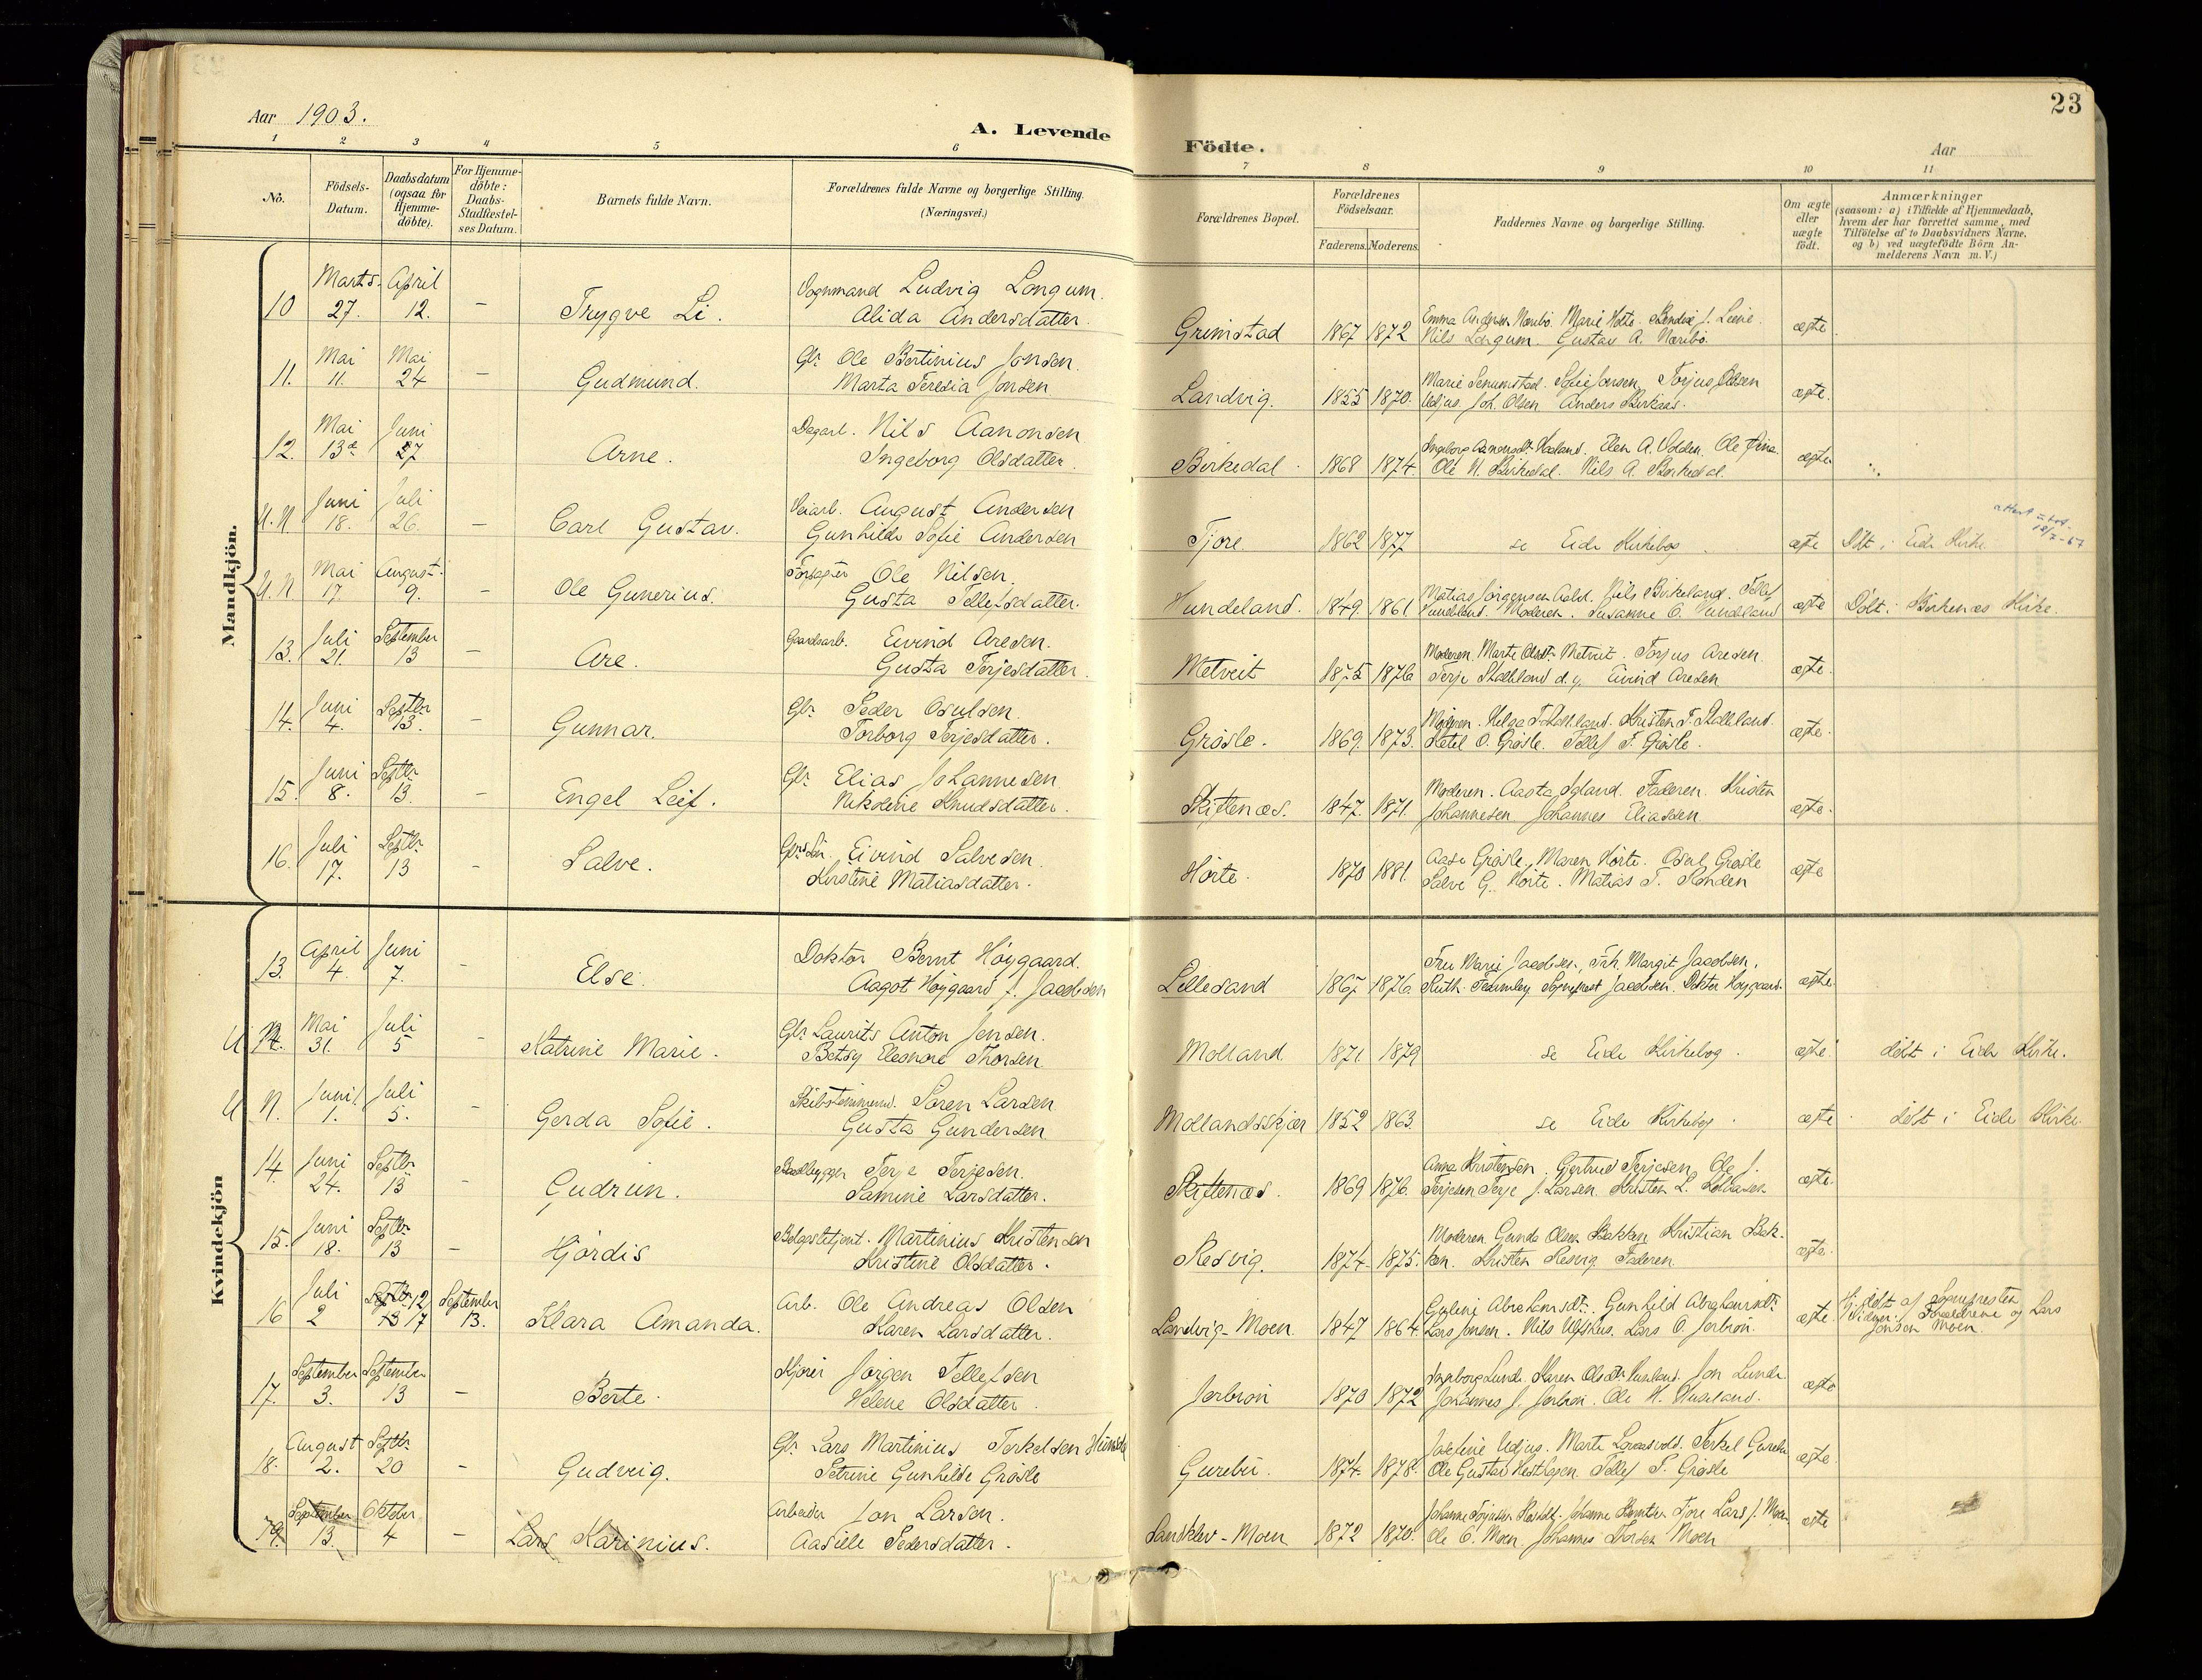 23
Aar 1903.
A. Levende
Födte.
Aar
1 2 3 4 5 6 7 8 9 10 11
No.
Födsels-Datum.
Daabsdatum (ogsaa for Hjemme-döbte).
For Hjemme-döbte: Daabs-Stadfæstel-ses Datum.
Barnets fulde Navn.
Forældrenes fulde Navne og borgerlige Stilling. (Næringsvei.)
Forældrenes Bopæl.
Forældrenes Födselsaar.
Faderens. Moderens.
Faddernes Navne og borgerlige Stilling.
Om ægte eller uægte födt.
Anmærkninger
(saasom: a) i Tilfælde af Hjemmedaab, hvem der har forrettet samme, med Tilföielse af to Daabsvidners Navne, og b) ved uægtefödte Börn Anmelderens Navn m. V.)
Mandkjön.
10 Marts 27. April 12. – Trygve Li. Vognmand Ludvig Longum. Alida Andersdatter. Grimstad 1867 1872 Emma Andersen Næribö. Marie Holte. Nils Longum. Gustav A. Næribö. ægte
11. Mai 11. Mai 24 – Gudmund. Gbr. Ole Bertinius Jonsen. Marta Teresia Jonsen Landvig. 1855 1870. Sofie Jonsen. Torjus Olsen Udjus. Joh. Olsen Anders Birkaas. ægte.
12. Mai 13de Juni 27 Arne. Dagarb. Nils Aanonsen Ingeborg Olsdatter. Birkedal. 1868 1874. Ole N. Birkedal. Nils A. Birkedal. ægte
U.N. Juni 18. Juli 26. – Carl Gustav. Veiarb. August Andersen Gunhilde Sofie Andersen Tjore. 1862 1877 se Eide Kirkebog. ægte Döbt i Eide Kirke
U.N. Mai 17. August 9. – Ole Gunerius. Ole Nilsen. Gusta Tellefsdatter. Hundeland. 1849. 1861. Matias Jörgensen Nils Birkeland. Tellef Hundeland. Moderen. Susanne O. Hundeland ægte Döbt i Birkenæs Kirke.
13. Juli 21. September 13 – Are. Gaardsarb. Eivind Aresen. Gusta Terjesdatter. Metveit 1875 1876 Moderen. Marte Olsdt. Metveit. Torjus Aresen. Terje Stalleland d.y. Eivind Aresen ægte.
14. Juni 4. Septbr 13. – Gunnar. Gbr. Peder Osulsen. Torborg Terjesdatter. Grösle. 1869. 1873. Moderen. Helga Kristen T. Stalleland. Ketel O. Grösle. Tellef T. Grösle. ægte.
15. Juni 8. Septbr 13. – Engel Leif. Gbr. Elias Johannesen Nikoline Knudsdatter. Skiftenæs. 1847. 1871. Moderen. Aasta Igland. Faderen. Kristen Johannesen Johannes Eliassen ægte.
16. Juli 17. Septbr 13 – Salve. Eivind Salvesen. Kirstine Matiasdatter. Hörte. 1870 1881. Aase Grösle. Maren Hörte. Osul Grösle Salve G. Hörte. Matias T. Rönden ægte
Kvindekjön
13. April 4. Juni 7. – Else. Doktor Bernt Höygaard. Aagot Höygaard f. Jacobsen Lillesand 1867 1876. Fru Marie Jacobsen, Frk. Margit Jacobsen, Ruth Sognepræst Jacobsen. Doktor Höygaard. ægte.
U N. Mai 31. Juli 5 – Katrine Marie. Gbr. Laurits Anton Jensen. Betsy Eleonore Thorsen Molland 1871 1879 se Eide Kirkebog. ægte döbt i Eide Kirke.
U N. Juni 1. Juli 5. – Gerda Sofie. Skibstömmermd. Sören Larsen. Gusta Gundersen Mollandsskjær 1852 1863. se Eide Kirkebog. ægte döbt i Eide Kirke.
14. Juni 24. Septbr 13 – Gudrun. Terje Terjesen. Samine Larsdatter. Skiftenæs. 1869 1876. Anna Kristensen. Gertrud Terjesen Ole J. Terjesen Terje J. Larsen. Kristen L. ægte.
15. Juni 18. Septbr 13 – Hjördis Martinius Kristensen Kristine Olsdatter. Resvig. 1874. 1875. Moderen. Gunda Olsen Bakken Kristian Bak-ken. Kristen Resvig. Faderen. ægte.
16 Juli 2 Septbr 12 13 17 September 13. Klara Amanda. Arb. Ole Andreas Olsen Karen Larsdatter. Landvig-Moen. 1847 1864. Abrahamsdt. Gunhild Abrahamsdt. Lars Jonsen. Nils Lars O. Jorbron. ægte Hj. döbt af Sognepresten Vidner: Forældrene og Lars Jonsen Moen.
17. September 3. September 13 – Berte. Kjörer Jörgen Tellefsen Helene Olsdatter. Jorbron 1870 1872 Ingeborg Lunde. Karen Olsdt. Jon Lunde Johannes J. Jorbron. Ole H. ægte
18. August 2. Septbr 20 – Gudveig. Gbr. Lars Martinius Terkelsen Petrine Gunhilde Grösle Gurebu. 1874. 1878. Josefine Udjus. Marte Terkel Gurebu Ole Gustav Tellef T. Grösle ægte
19. September 13. Oktober 4 – Lars Karinius. Arbeider Jon Larsen. Aasille Pedersdatter. Landvig-Moen 1872 1870. Tjore Lars J. Moen. Ole O. Moen. Johannes Moen ægte